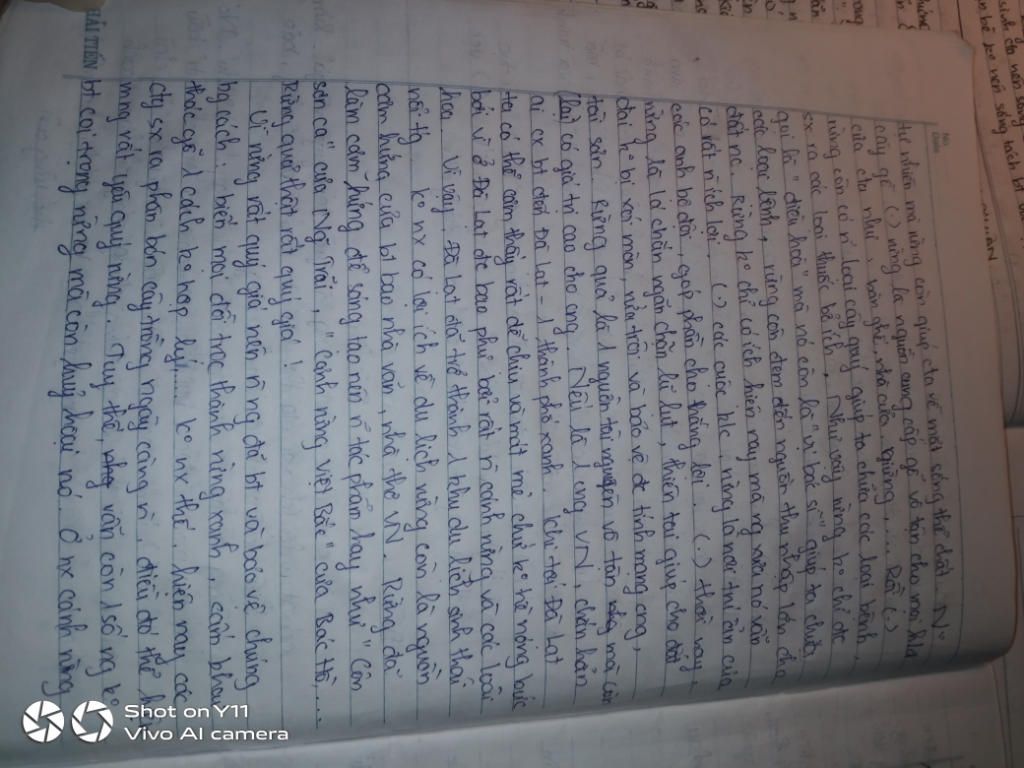 tự nhiên mà rừng còn giúp cta về mặt sống thể chất. N°
cây gỗ (.) rừng là nguồn cung cấp gỗ vô tận cho mọi nhà
của cta như: bàn ghế, nhà cửa, giường,... Rồi (.)
rừng còn có n̄ loại cây quý giúp ta chữa các loại bệnh,
sx ra các loại thuốc bổ ích. Như vậy rừng k° chỉ đc
gọi là "điều hoà" mà nó còn là "vị bác sĩ" giúp ta chữa
các loại bệnh, rừng còn đem đến nguồn thu nhập lớn cho
đất nc. Rừng k° chỉ có ích hiện nay mà ng xưa nó vẫn
có rất n̄ ích lợi. (.) các cuộc k/c, rừng là nơi trú ẩn của
các anh bộ đội, góp phần cho thắng lợi. (.) thời nay,
rừng là lá chắn ngăn chặn lũ lụt, thiên tai giúp cho đất
đai k° bị xói mòn, rửa trôi và bảo vệ đc tính mạng cng,
tài sản. Rừng quả là 1 nguồn tài nguyên vô tận mà còn
có giá trị cao cho cng. Nếu là 1 cng VN, chắn hẳn
ai cx bt đến Đà Lạt - 1 thành phố xanh. Khi tới Đà Lạt
ta có thể cảm thấy rất dễ chịu và mát mẻ chứ k° hề nóng bức
bởi vì ở Đà Lạt đc bao phủ bởi rất n̄ cánh rừng và các loài
hoa. Vì vậy, Đà Lạt đã trở thành 1 khu du lịch sinh thái
nổi tg. k° nx có lợi ích về du lịch rừng còn là nguồn
cảm hứng của bt bao nhà văn, nhà thơ VN. Rừng đã
làm cảm hứng để sáng tạo nên n̄ tác phẩm hay như "Côn
sơn ca" của Ng Trãi, "Cảnh rừng việt Bắc" của Bác Hồ,...
Rừng quả thật rất quý giá!
Vì rừng rất quý giá nên n̄ ng đã bt và bảo vệ chúng
bg cách: biến mọi đồi trọc thành rừng xanh,
1 cách k° hợp lý,... k° nx thế, hiện nay các
cty sx ra phân bón cây trồng ngày càng n̄, điều đó thể h
mng rất yêu quý rừng. Tuy thế, vẫn còn 1 số ng k°
bt coi trọng rừng mà còn huỷ hoại nó. Ở nx cánh rừng
HẢI TIẾN
Shot on Y11
Vivo AI camera